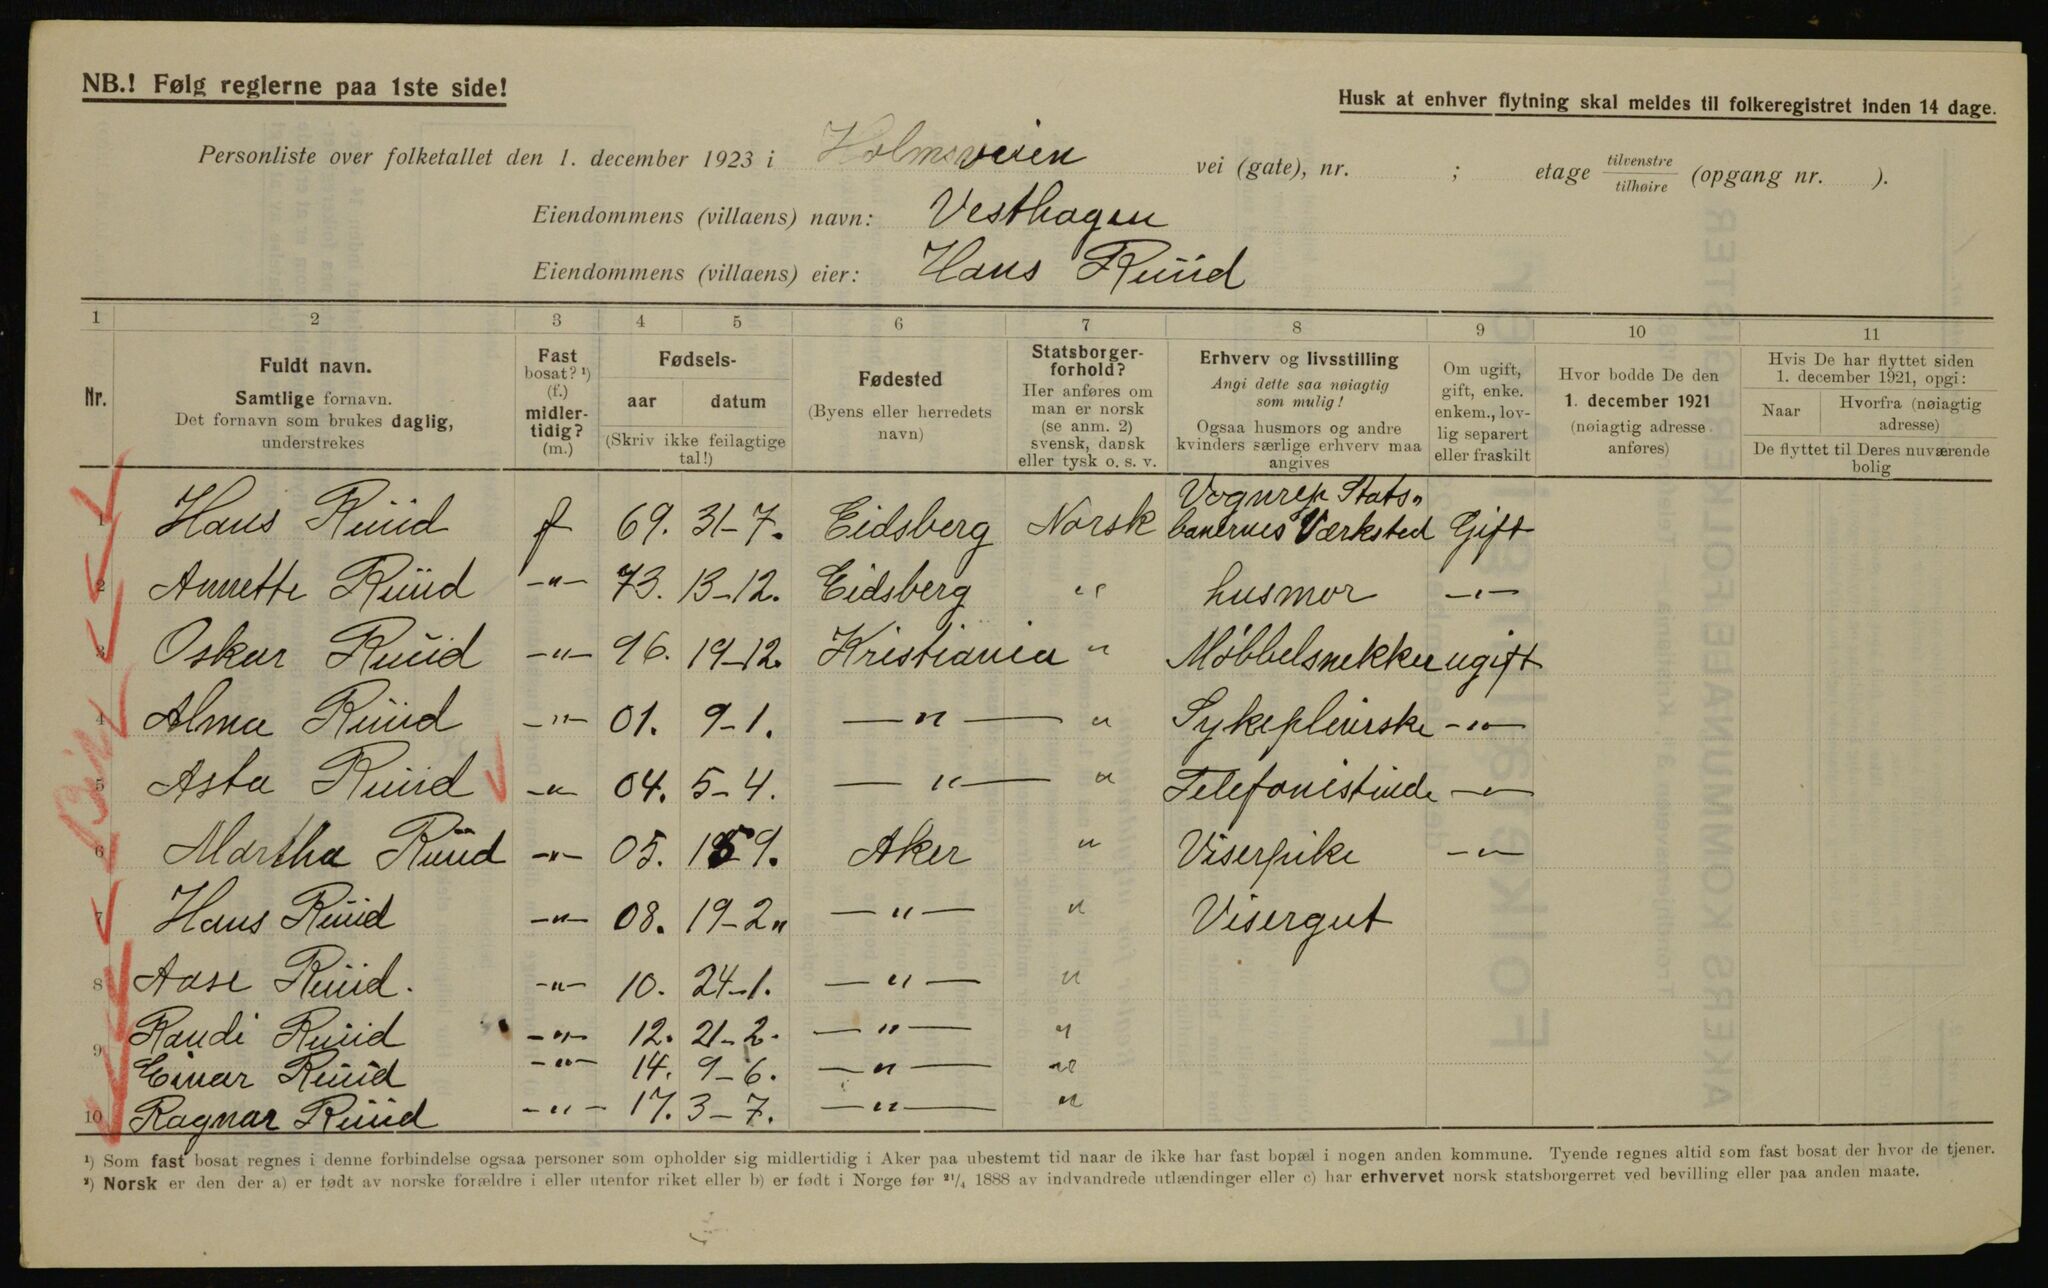 NB.! Følg reglerne paa 1ste side!
Husk at enhver flytning skal meldes til folkeregistret inden 14 dage.
Personliste over folketallet den 1. december 1923 i Holmsveien vei (gate), nr. ; etage tilvenstre tilhøire (opgang nr. ).
Eiendommens (villaens) navn: Vesthagen
Eiendommens (villaens) eier: Hans Ruud
1 2 3 4 5 6 7 8 9 10 11
Nr.
Fuldt navn.
Samtlige fornavn.
Det fornavn som brukes daglig,
understrekes
Fast
bosat? ¹)
(f.)
midler-
tidig?
(m.)
Fødsels-
aar datum
(Skriv ikke feilagtige
tal!)
Fødested
(Byens eller herredets
navn)
Statsborger-
forhold?
Her anføres om
man er norsk
(se anm. 2)
svensk, dansk
eller tysk o. s. v.
Erhverv og livsstilling
Angi dette saa nøiagtig
som mulig!
Ogsaa husmors og andre
kvinders særlige erhverv maa
angives
Om ugift,
gift, enke.
enkem., lov-
lig separert
eller fraskilt
Hvor bodde De den
1. december 1921
(nøiagtig adresse
anføres)
Hvis De har flyttet siden
1. december 1921, opgi:
Naar
Hvorfra (nøiagtig
adresse)
De flyttet til Deres nuværende
bolig
1 Hans Ruud f 69. 31-7. Eidsberg Norsk Vognrep Stats-
banernes Værksted Gift
2 Annette Ruud -"- 73. 13-12. Eidsberg " husmor -"-
3 Oskar Ruud -"- 96. 19-12. Kristiania " Møbbelsnekker ugift
4 Alma Ruud -"- 01. 9-1. -"- " Sykepleierske -"-
5 Asta Ruud -"- 04. 5-4. -"- " Telefonistinde -"-
6 Martha Ruud -"- 05. 15-9. Aker " Viserpike -"-
7 Hans Ruud -"- 08. 19-2. -"- " Visergut
8 Aase Ruud. -"- 10. 24-1. -"- "
9 Randi Ruud -"- 12. 21-2. -"- "
Einar Ruud -"- 14. 9-6. -"- "
10 Ragnar Ruud -"- 17. 3-7. -"- "
¹) Som fast bosat regnes i denne forbindelse ogsaa personer som opholder sig midlertidig i Aker paa ubestemt tid naar de ikke har fast bopæl i nogen anden kommune. Tyende regnes altid som fast bosat der hvor de tjener.
²) Norsk er den der a) er født av norske forældre i eller utenfor riket eller b) er født i Norge før ²¹/₄ 1888 av indvandrede utlændinger eller c) har erhvervet norsk statsborgerret ved bevilling eller paa anden maate.